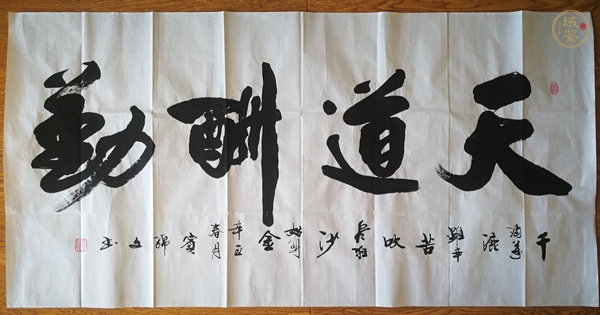 天道酬勤
千淘万漉虽辛苦吹尽狂沙始到金
辛丑春月